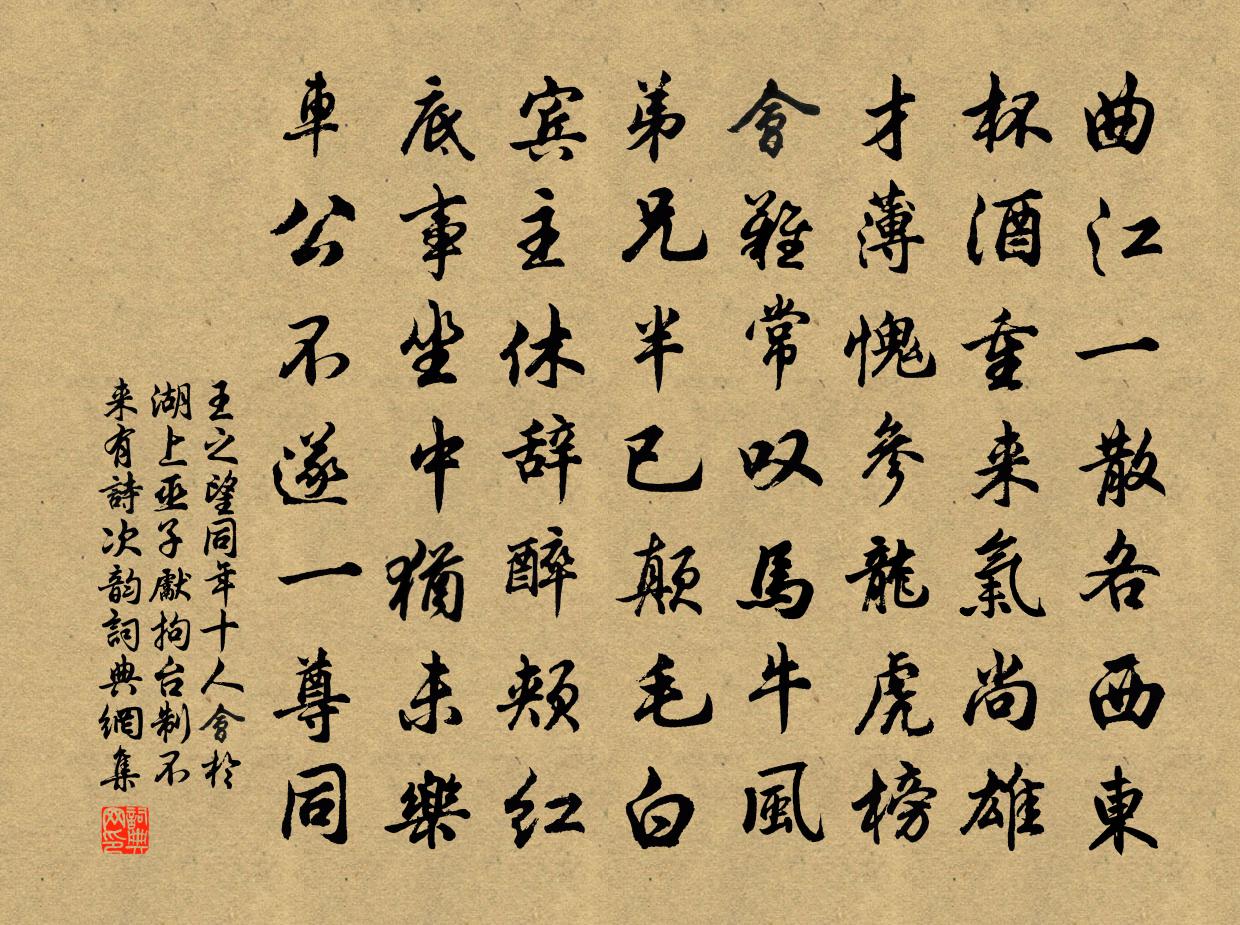 曲江一散各西東
杯酒重来氣尚雄
才薄愧參龍虎榜
會難常叹馬牛風
弟兄半已顛毛白
宾主休辞醉頰红
底事坐中猶未樂
車公不遂一尊同
王之望同年十人會於
湖上亚子獻拘台制不
来有詩次韵詞典網集
詞典网印